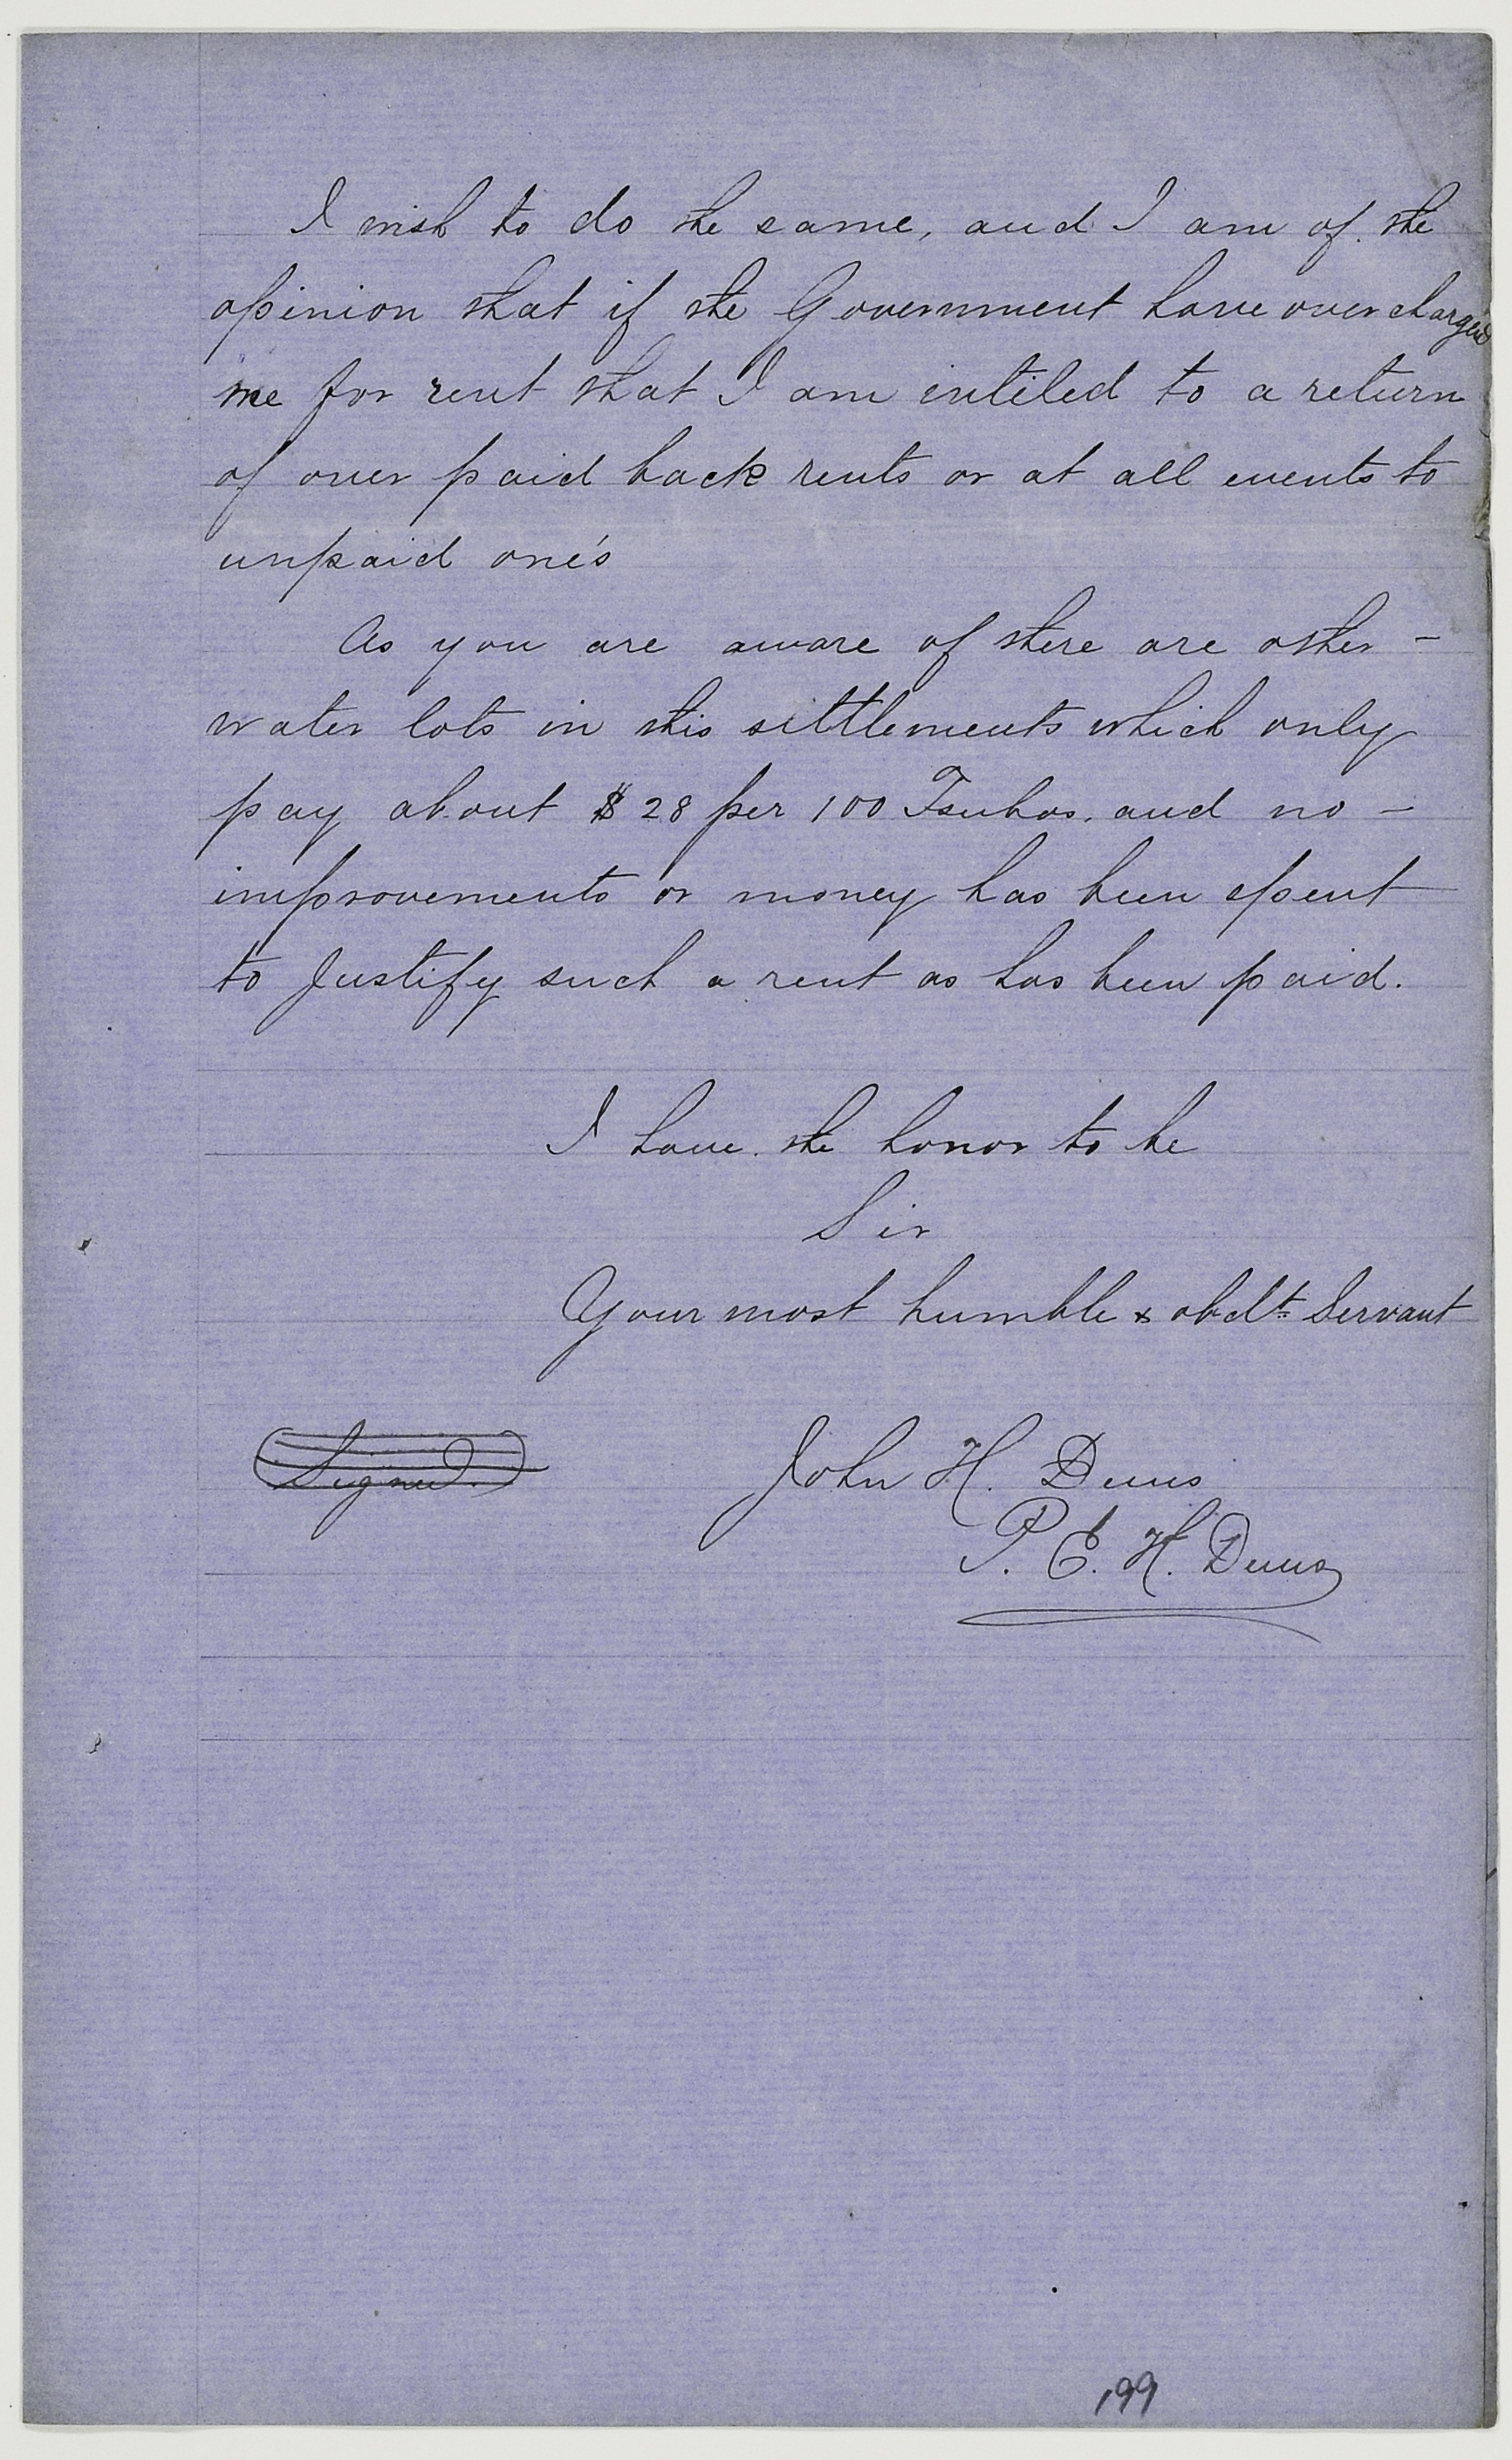 I wish to do the same, and I am of the
opinion that if the Government have overcharged
me for rent that I am intiled to a return
of over paid back rents or at all events to
unpaid one's
As you are aware of there are other -
water lots in this sittlements which only
pay about $28 per 100 Tsubos. and no -
improvements or money has been spent
to Justify such a rent as has been paid.
I have the honor to be
Sir
Your most humble & obdt Servant
(Signed.)
John H. Duus
P. E. H. Duus
199